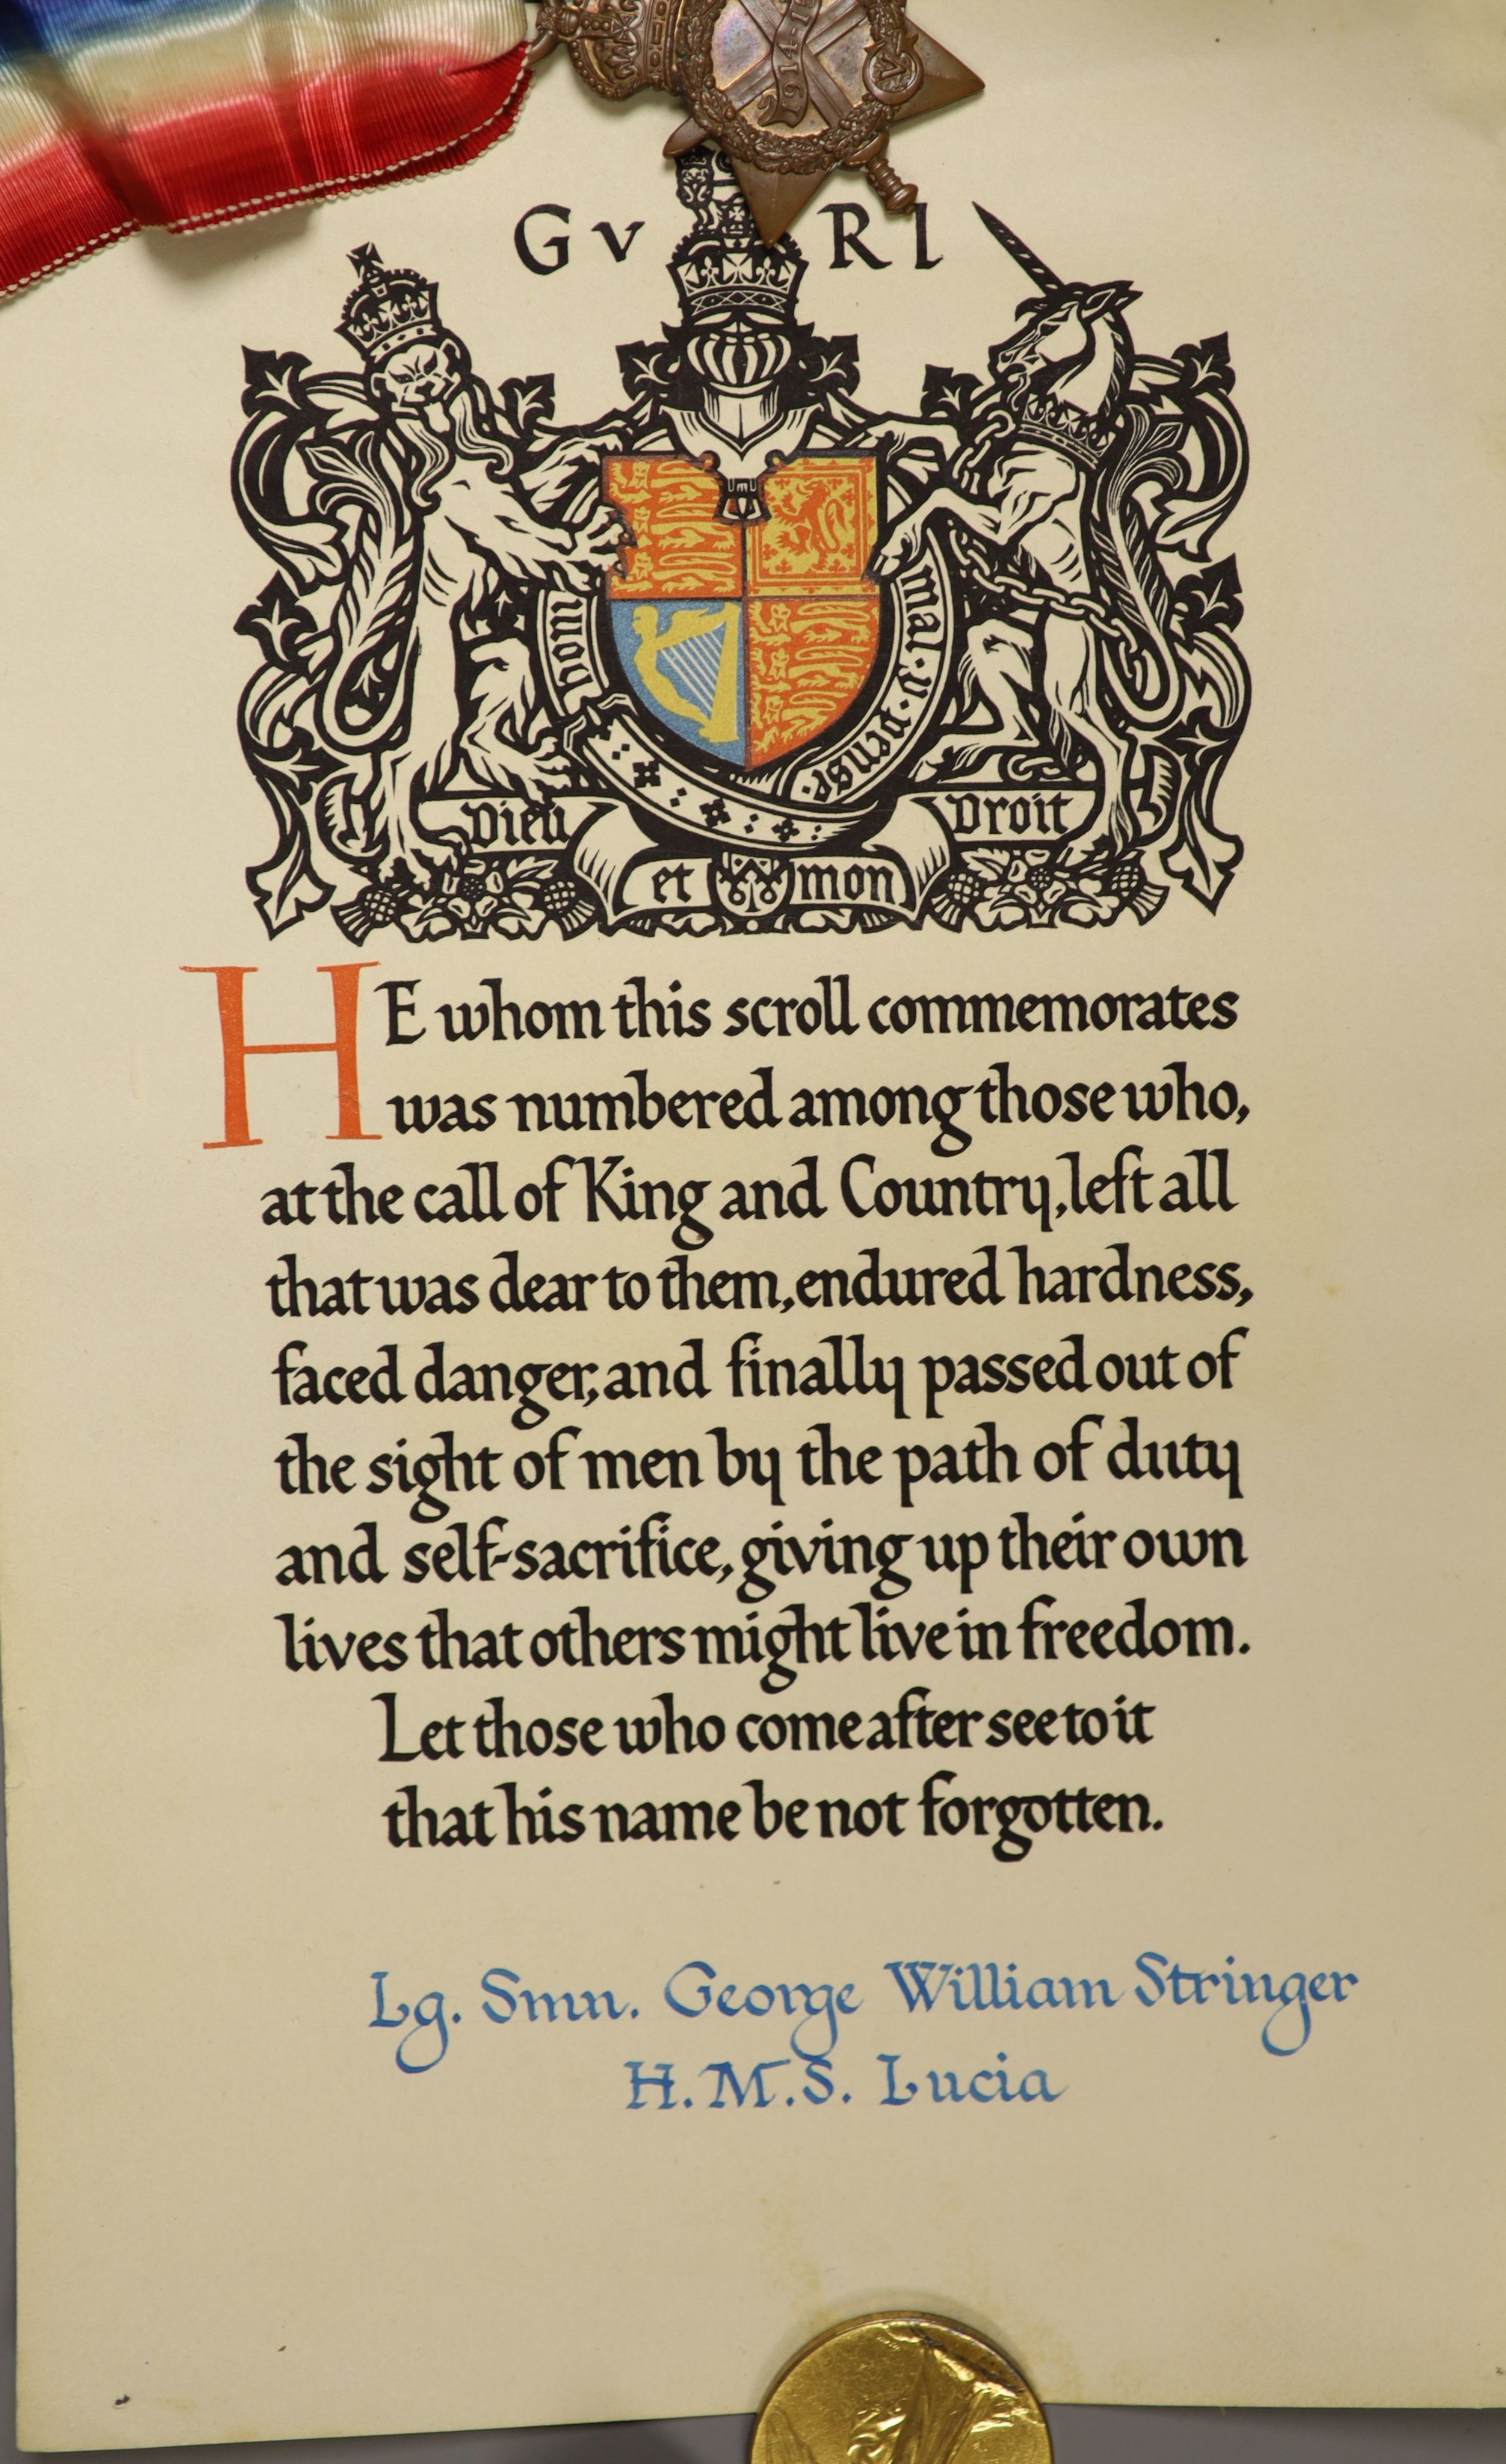 1914-15
GV RI
honi mal·y·pense·
Dieu et mon Droit
HE whom this scroll commemorates
was numbered among those who,
at the call of King and Country, left all
that was dear to them, endured hardness,
faced danger, and finally passed out of
the sight of men by the path of duty
and self-sacrifice, giving up their own
lives that others might live in freedom.
Let those who come after see to it
that his name be not forgotten.
Lg. Smn. George William Stringer
H.M.S. Lucia